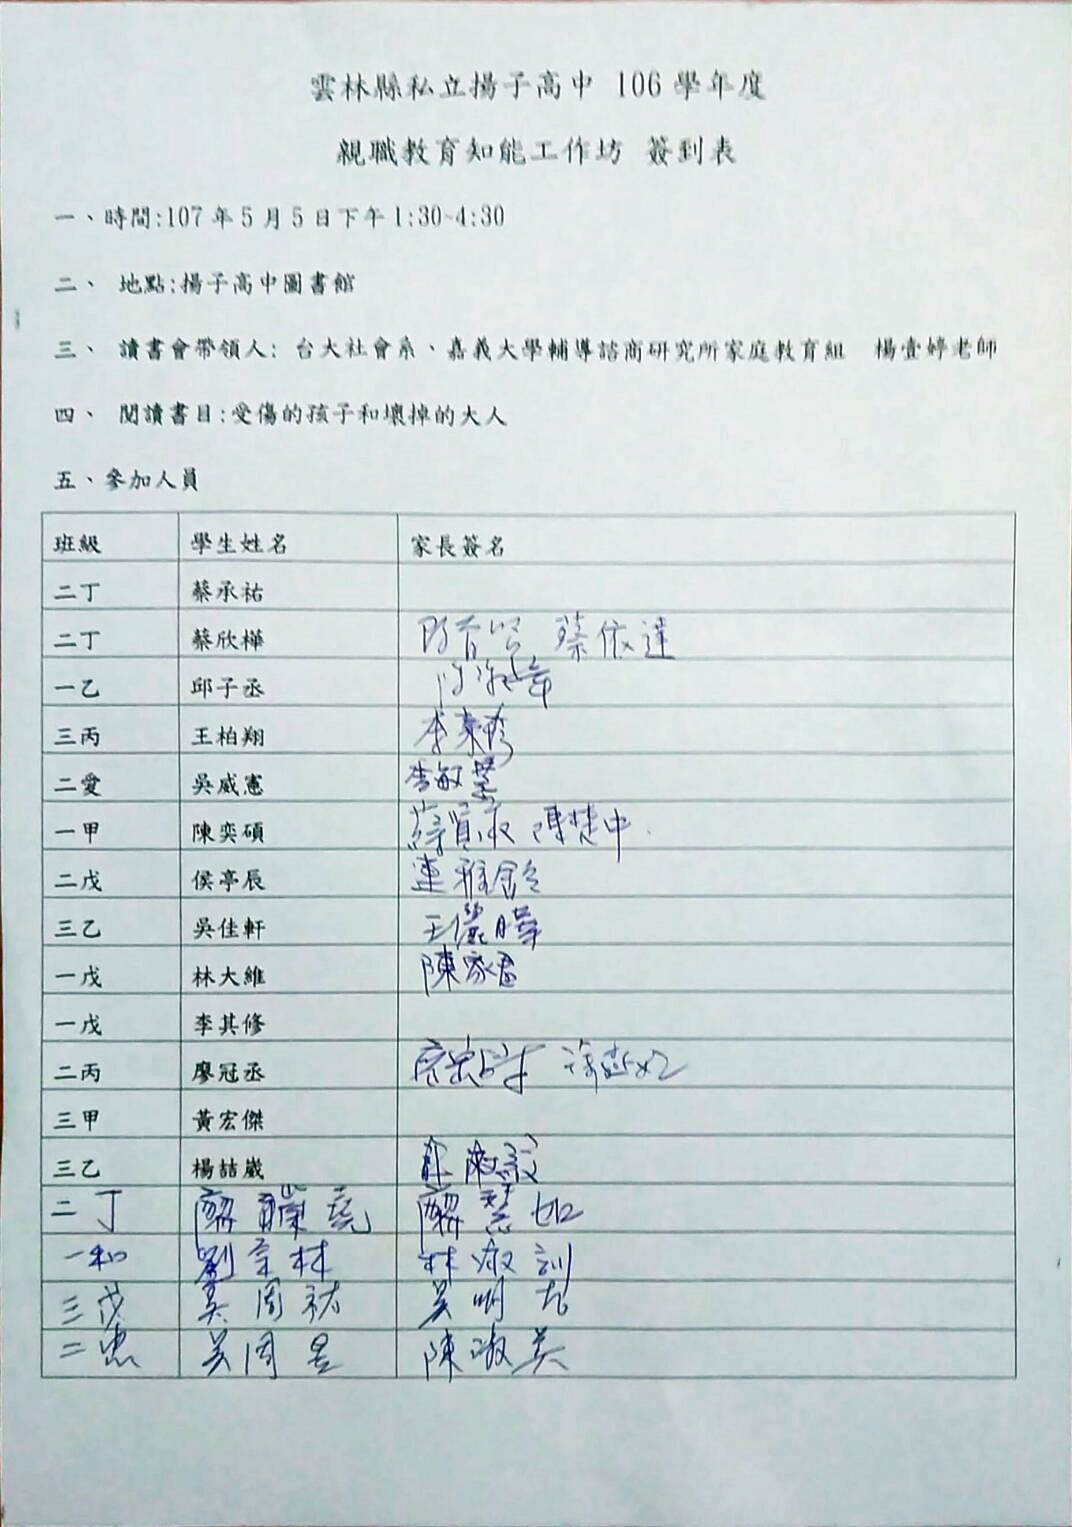 雲林縣私立揚子高中 106 學年度
親職教育知能工作坊 簽到表
一、時間:107 年 5 月 5 日下午 1:30-4:30
二、 地點:揚子高中圖書館
三、 讀書會帶領人: 台大社會系、嘉義大學輔導諮商研究所家庭教育組 楊壹婷老師
四、 閱讀書目:受傷的孩子和壞掉的大人
五、參加人員
班級 學生姓名 家長簽名
二丁 蔡承祐
二丁 蔡欣樺 蔡依達
一乙 邱子丞
三丙 王柏翔
二愛 吳威憲 李敏慧
一甲 陳奕碩 陳楚中
二戊 侯亭辰
三乙 吳佳軒
一戊 林大維 陳家君
一戊 李其修
二丙 廖冠丞
三甲 黃宏傑
三乙 楊喆崴
二丁
一和 劉宗林 林淑訓
三戊 吳周祐
二忠 吳周昱 陳淑英